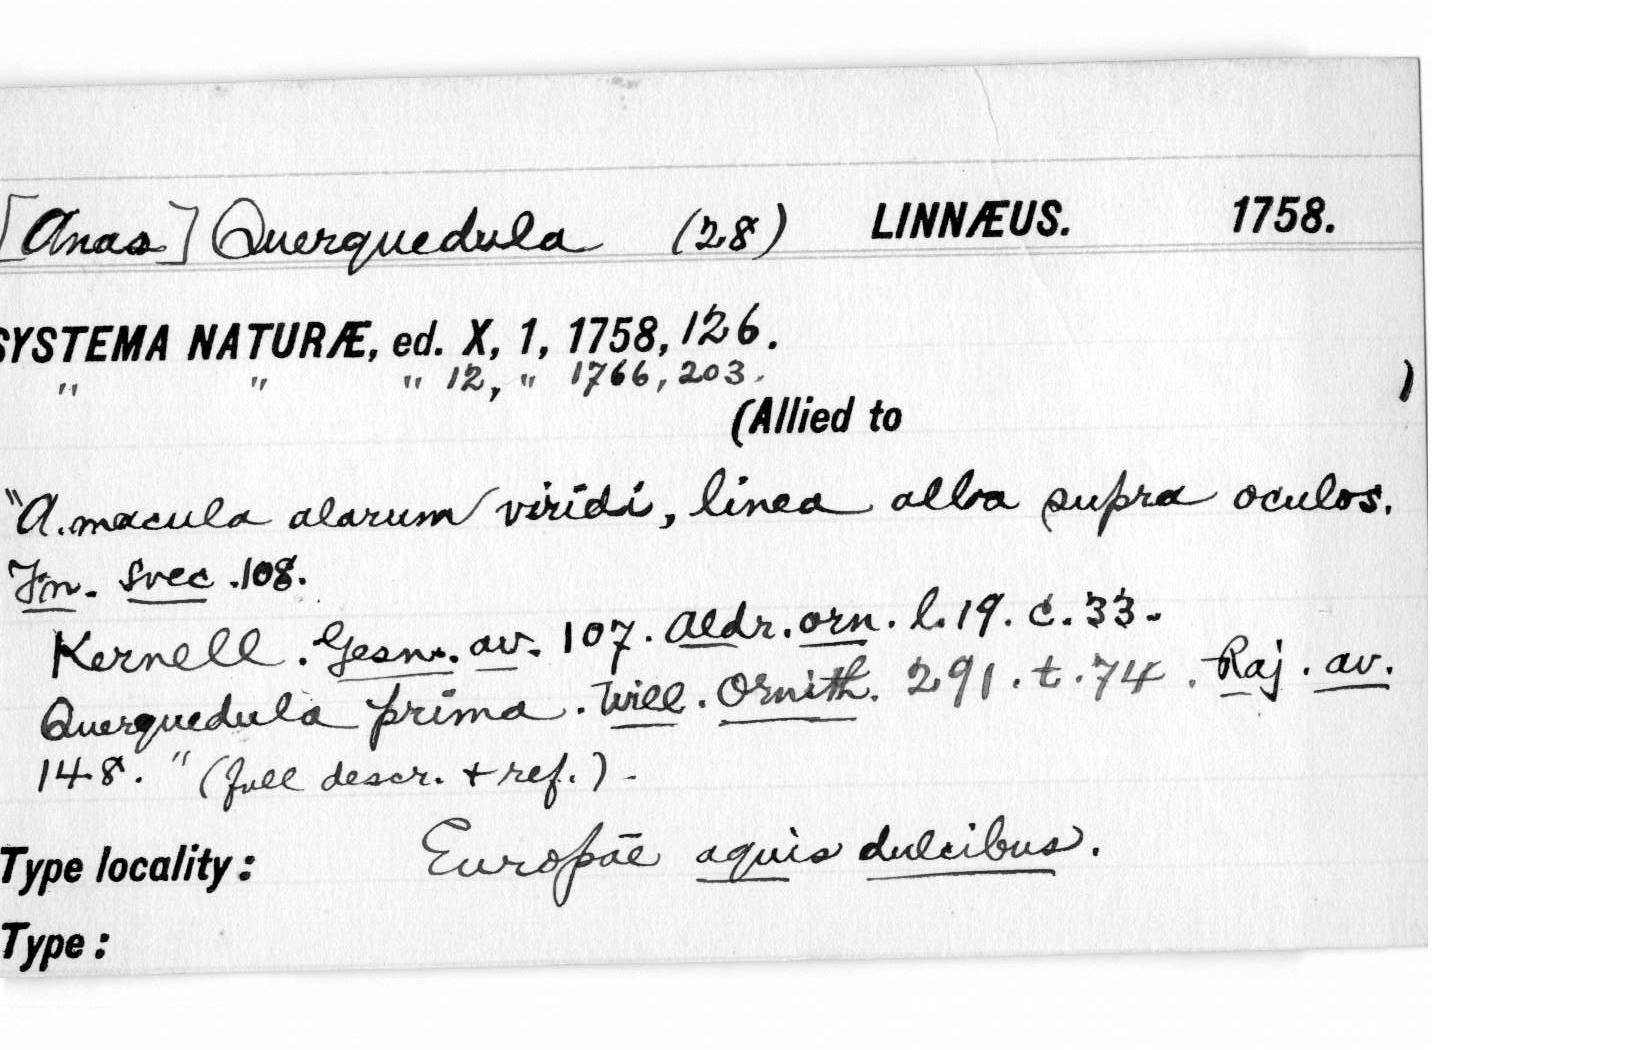 [Anas] Querquedula (28) LINNÆUS. 1758.
SYSTEMA NATURÆ, ed. X, 1, 1758, 126.
" " " 12, " 1766, 203.
(Allied to )
"A. macula alarum viridi, linea alba supra oculos.
Fn. svec. 108.
Kernell. Gesn. av. 107. Aldr. orn. l. 19. c. 33.
Querquedula prima. Will. Ornith. 291. t. 74. Raj. av.
148." (full descr. + ref.)
Type locality: Europāe aquis dulcibus.
Type: